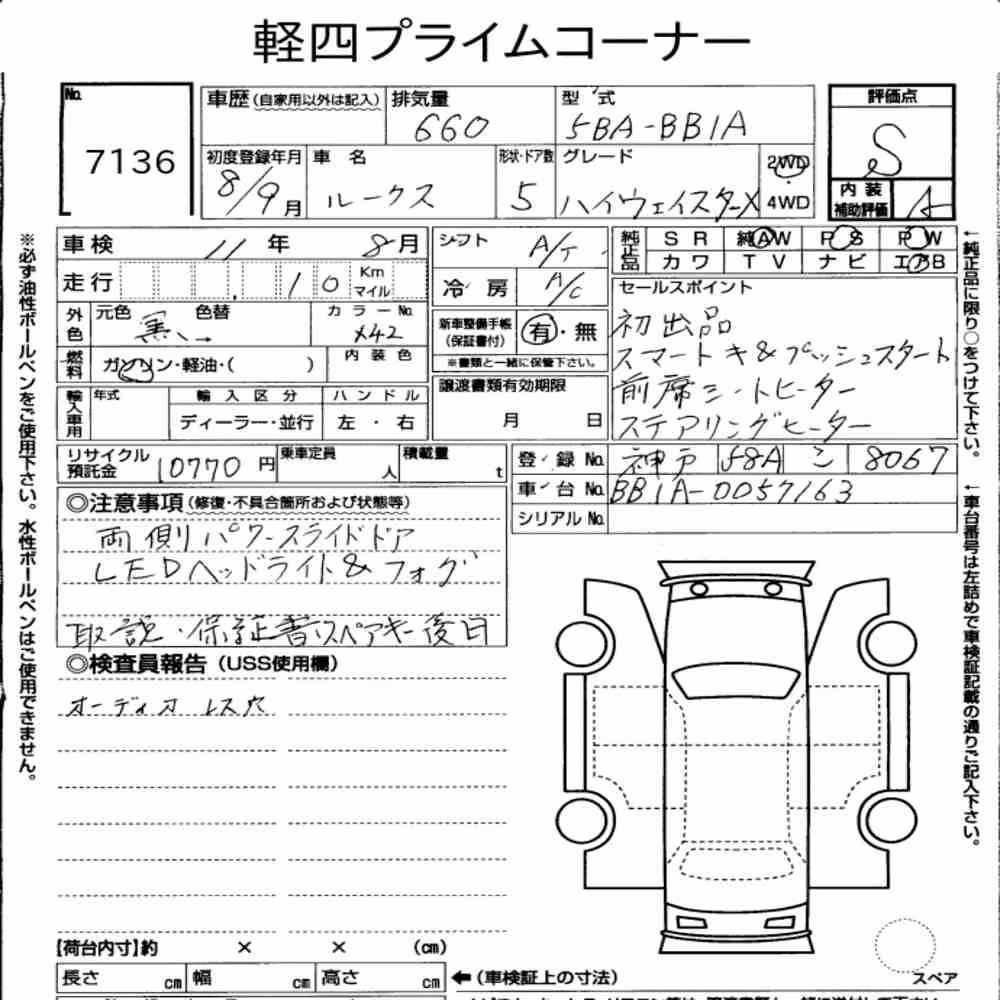 軽四プライムコーナー
No. 7136
車歴 (自家用以外は記入)
排気量 660
型式 5BA-BB1A
評価点 S
初度登録年月 8/9月
車名 ルークス
形状・ドア数 5
グレード ハイウェイスターX
2WD
4WD
内装補助評価 A
車検 11年 8月
走行 10 Km マイル
外色 元色 黒 色替 → カラーNo. X42
燃料 ガソリン・軽油・( ) 内装色
輸入車用 年式 輸入区分 ハンドル
ディーラー・並行 左・右
シフト A/T
冷房 A/C
新車整備手帳(保証書付) 有・無
※書類と一緒に保管下さい。
譲渡書類有効期限
月 日
純正品 SR 純AW PS PW
カワ TV ナビ エアB
セールスポイント
初出品
スマートキー&プッシュスタート
前席シートヒーター
ステアリングヒーター
リサイクル預託金 10770円
乗車定員 人
積載量 t
登録No. 神戸 58A こ 8067
車台No. BB1A-0057163
シリアルNo.
◎注意事項 (修復・不具合箇所および状態等)
両側パワースライドドア
LEDヘッドライト&フォグ
取説・保証書・スペアキー後日
◎検査員報告 (USS使用欄)
オーディオレス穴
【荷台内寸】約 × × (cm)
長さ cm 幅 cm 高さ cm ←(車検証上の寸法)
スペア
※必ず油性ボールペンをご使用下さい。水性ボールペンはご使用できません。
←純正品に限り○をつけて下さい。
←車台番号は左詰めで車検証記載の通りご記入下さい。